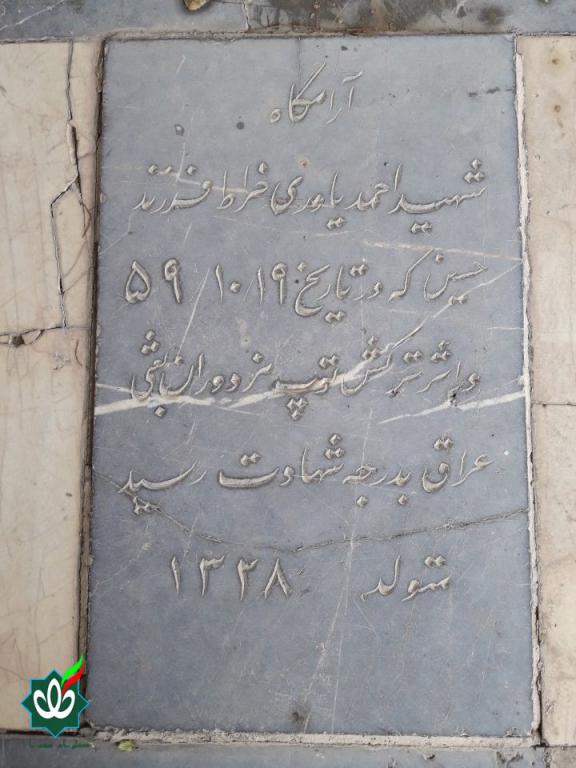 آرامگاه
شهید احمد یاوری خراط فرزند
حسین که در تاریخ ۵۹/۱۰/۱۹
در اثر ترکش توپ مزدوران بعثی
عراق بدرجه شهادت رسید
متولد ۱۳۳۸